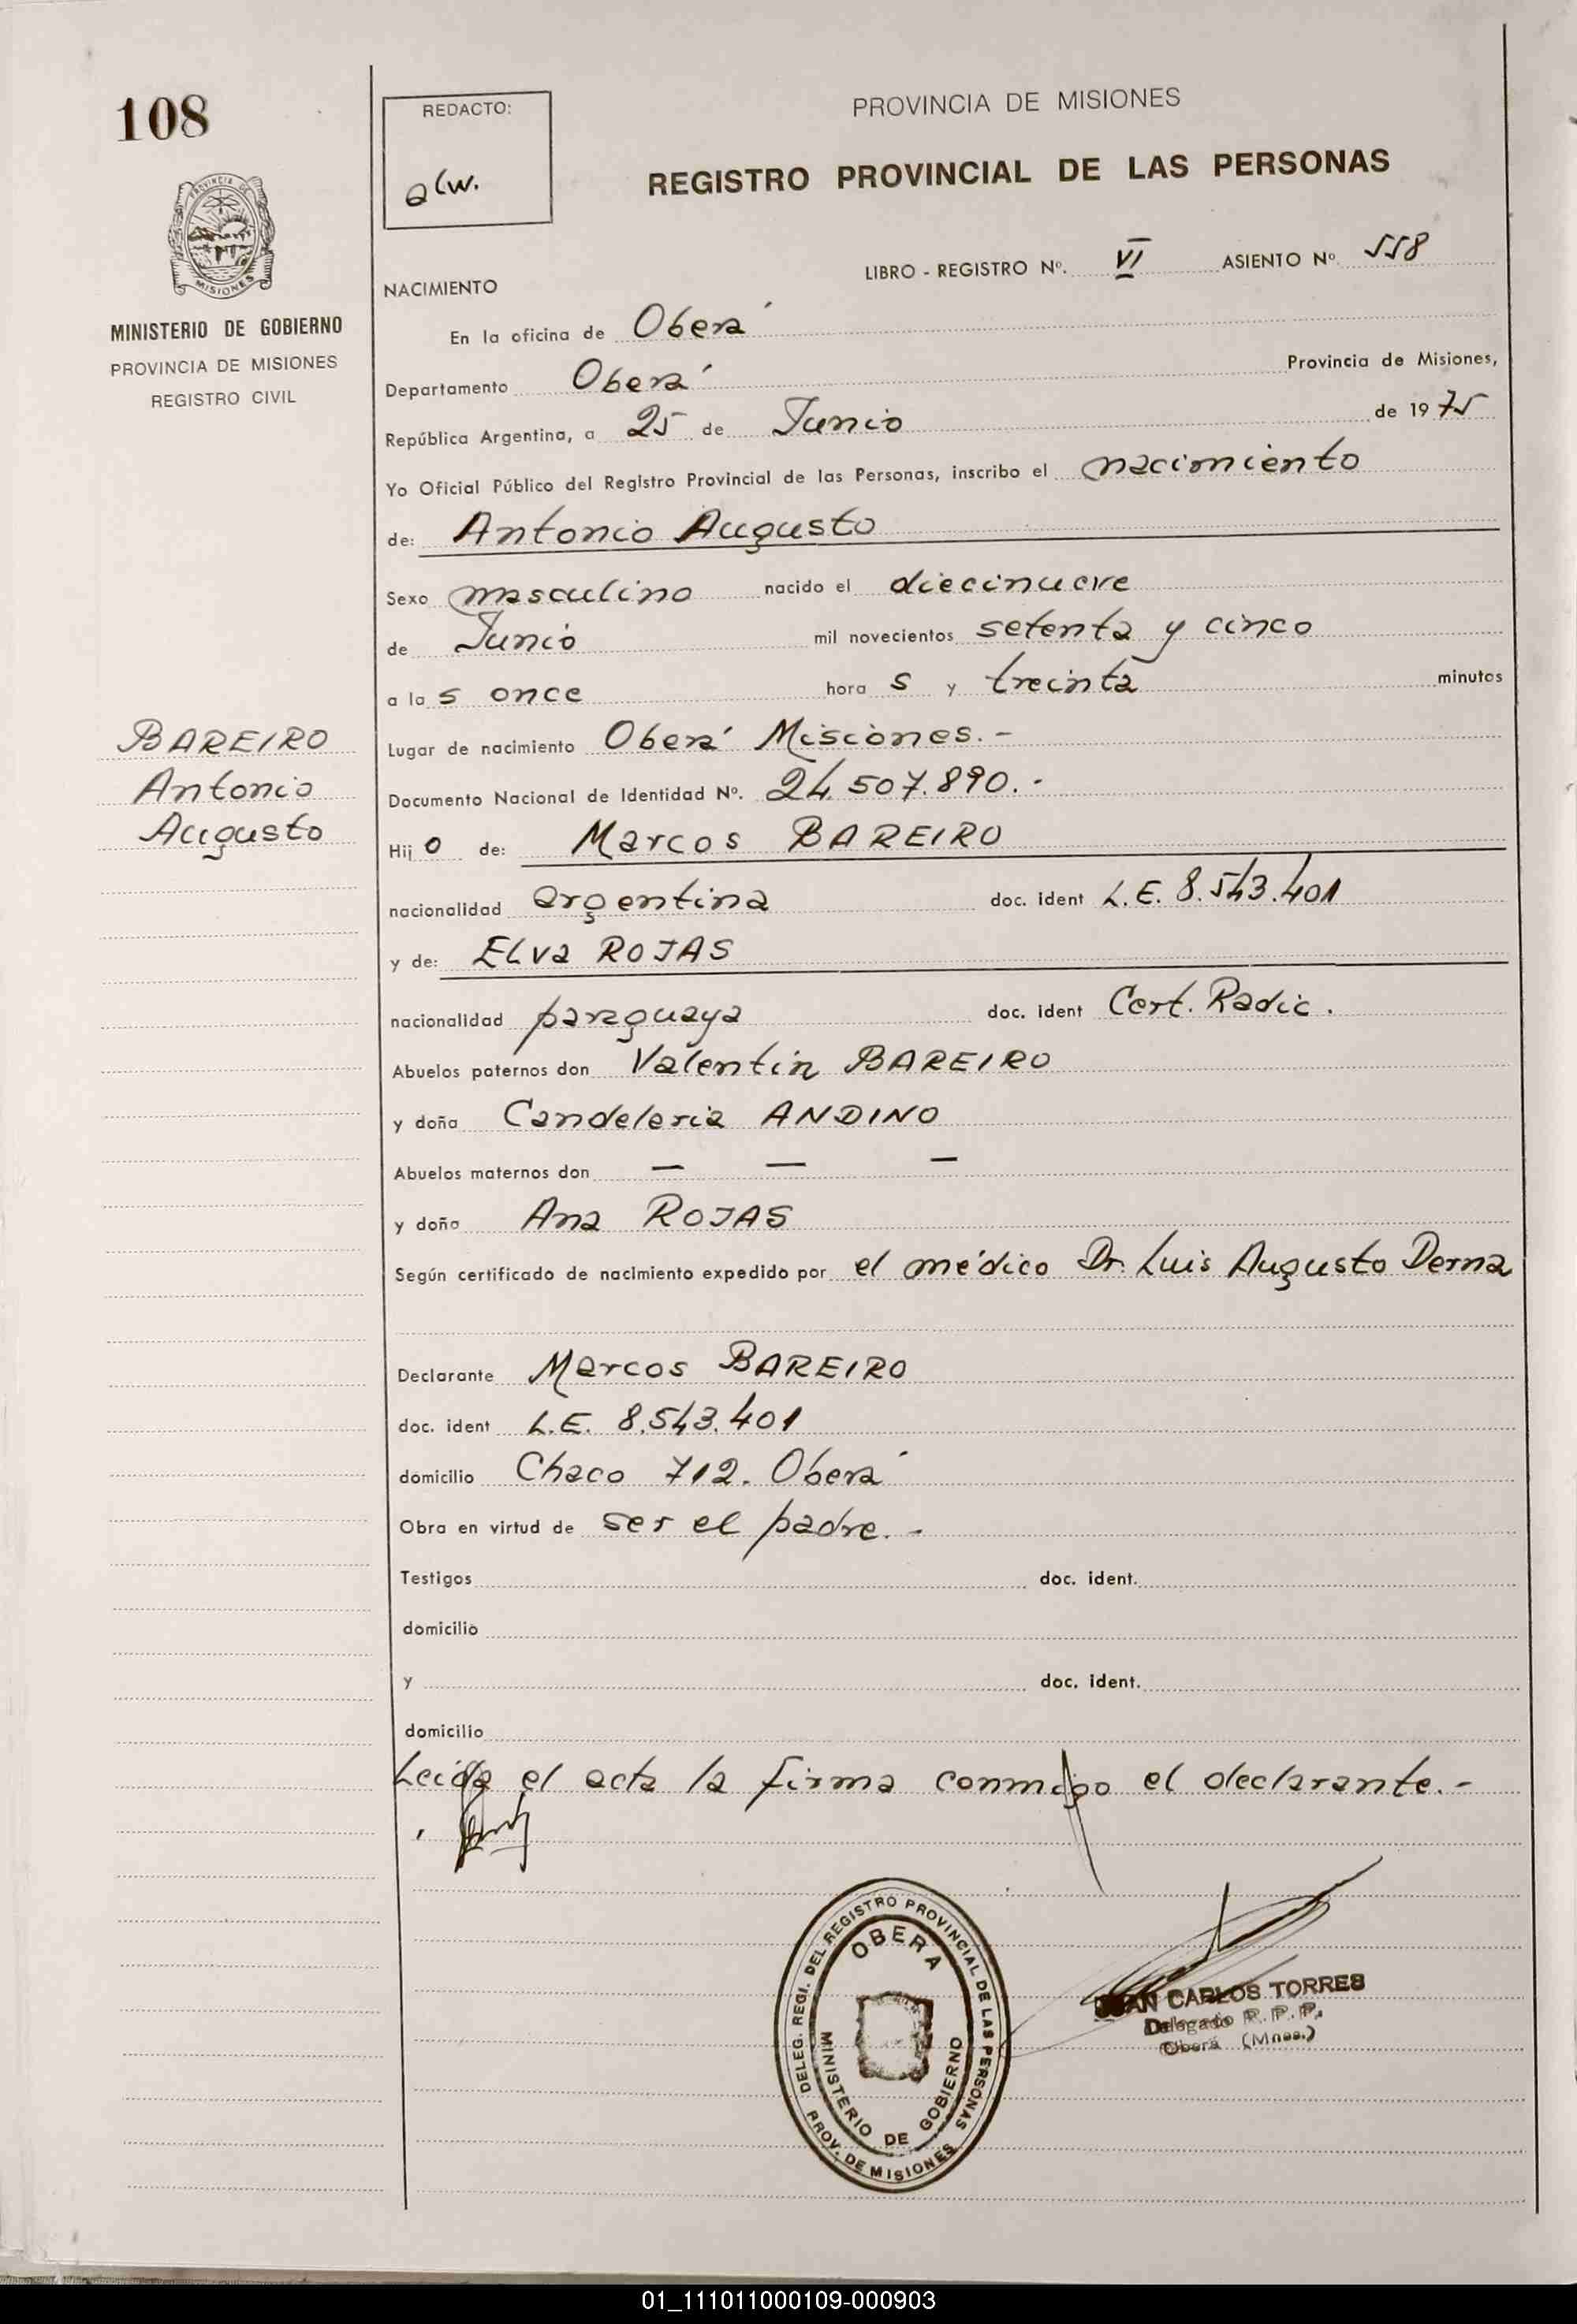 108
PROVINCIA DE MISIONES
MINISTERIO DE GOBIERNO
PROVINCIA DE MISIONES
REGISTRO CIVIL
BAREIRO
Antonio
Augusto
REDACTO:
alw.
PROVINCIA DE MISIONES
REGISTRO PROVINCIAL DE LAS PERSONAS
LIBRO - REGISTRO Nº. VI ASIENTO Nº 558
NACIMIENTO
En la oficina de Oberá
Departamento Oberá Provincia de Misiones,
República Argentina, a 25 de Junio de 1975
Yo Oficial Público del Registro Provincial de las Personas, inscribo el nacimiento
de: Antonio Augusto
Sexo masculino nacido el diecinueve
de Junio mil novecientos setenta y cinco
a las once horas y treinta minutos
Lugar de nacimiento Oberá Misiones.-
Documento Nacional de Identidad Nº. 24.507.890.-
Hijo de: Marcos BAREIRO
nacionalidad argentina doc. ident L.E. 8.543.401
y de: ELva ROJAS
nacionalidad paraguaya doc. ident Cert. Radic.
Abuelos paternos don Valentin BAREIRO
y doña Candelaria ANDINO
Abuelos maternos don — — —
y doña Ana ROJAS
Según certificado de nacimiento expedido por el médico Dr. Luis Augusto Derna
Declarante Marcos BAREIRO
doc. ident L.E. 8.543.401
domicilio Chaco 712. Oberá
Obra en virtud de ser el padre.-
Testigos doc. ident.
domicilio
y doc. ident.
domicilio
Leida el acta la firma conmigo el declarante.-
DELEG. REGI. DEL REGISTRO PROVINCIAL DE LAS PERSONAS
PROV. DE MISIONES
OBERA
MINISTERIO DE GOBIERNO
JUAN CARLOS TORRES
Delegado R.P.P.
Oberá (Mnes.)
01_111011000109-000903